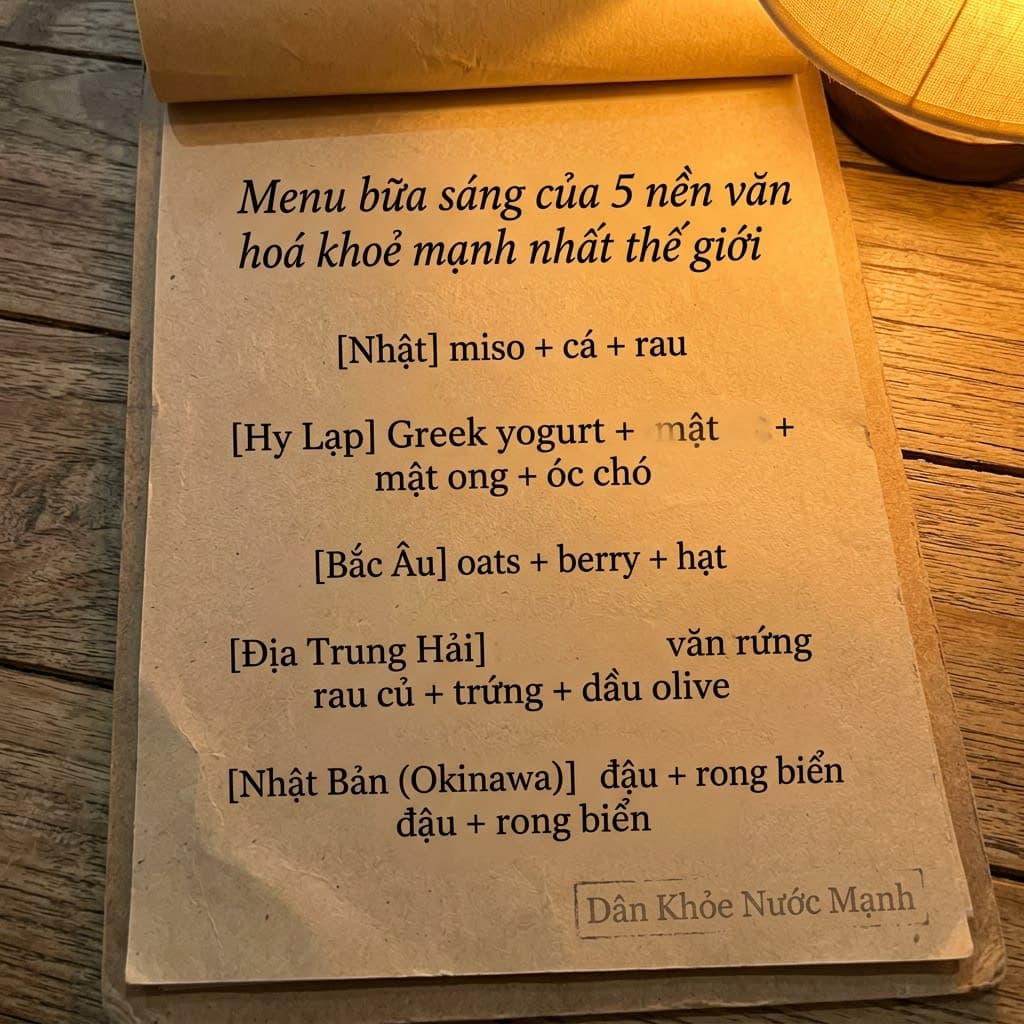 Menu bữa sáng của 5 nền văn
hoá khoẻ mạnh nhất thế giới
[Nhật] miso + cá + rau
[Hy Lạp] Greek yogurt + mật +
mật ong + óc chó
[Bắc Âu] oats + berry + hạt
[Địa Trung Hải] văn rứng
rau củ + trứng + dầu olive
[Nhật Bản (Okinawa)] đậu + rong biển
đậu + rong biển
Dân Khỏe Nước Mạnh